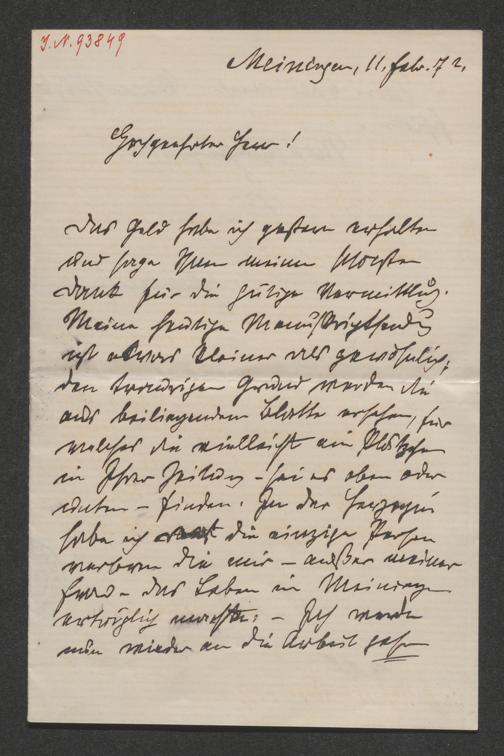 J.N. 93849
Meiningen, 11. Febr. 72.
Hochgeehrter Herr!
Das Geld habe ich gestern erhalten
und sage Ihnen meinen
Dank für die gütige Vermittlung.
Meine heutige Manuskriptsendung
ist etwas kleiner als gewöhnlich,
den traurigen Grund werden Sie
aus beiliegendem Blatte ersehen, für
welches Sie vielleicht ein Plätzchen
in Ihrer Zeitung – sei es oben oder
unten – finden. In der Herzogin
habe ich die einzige Person
verloren die mir – außer meiner
Frau – das Leben in Meiningen
erträglich machte. – Ich werde
nun wieder an die Arbeit gehen